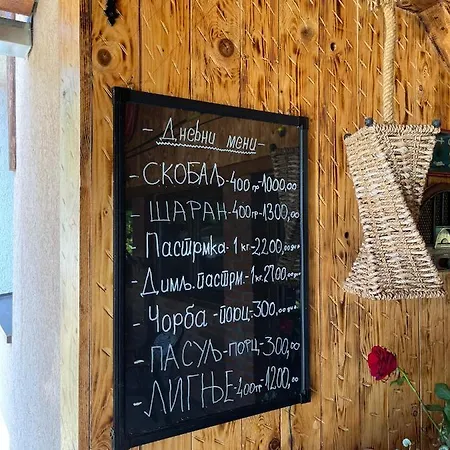 - Дневни мени -
- СКОБАЉ - 400 гр - 1000,00
- ШАРАН - 400 гр - 1300,00
- Пастрмка - 1 кг - 2200,00 дин
- Димљ. пастрм. - 1 кг. 2700,00 дин
- Чорба - порц - 300,00 дин
- ПАСУЉ - ПОРЦ - 300,00
- ЛИГЊЕ - 400 гр 1200,00